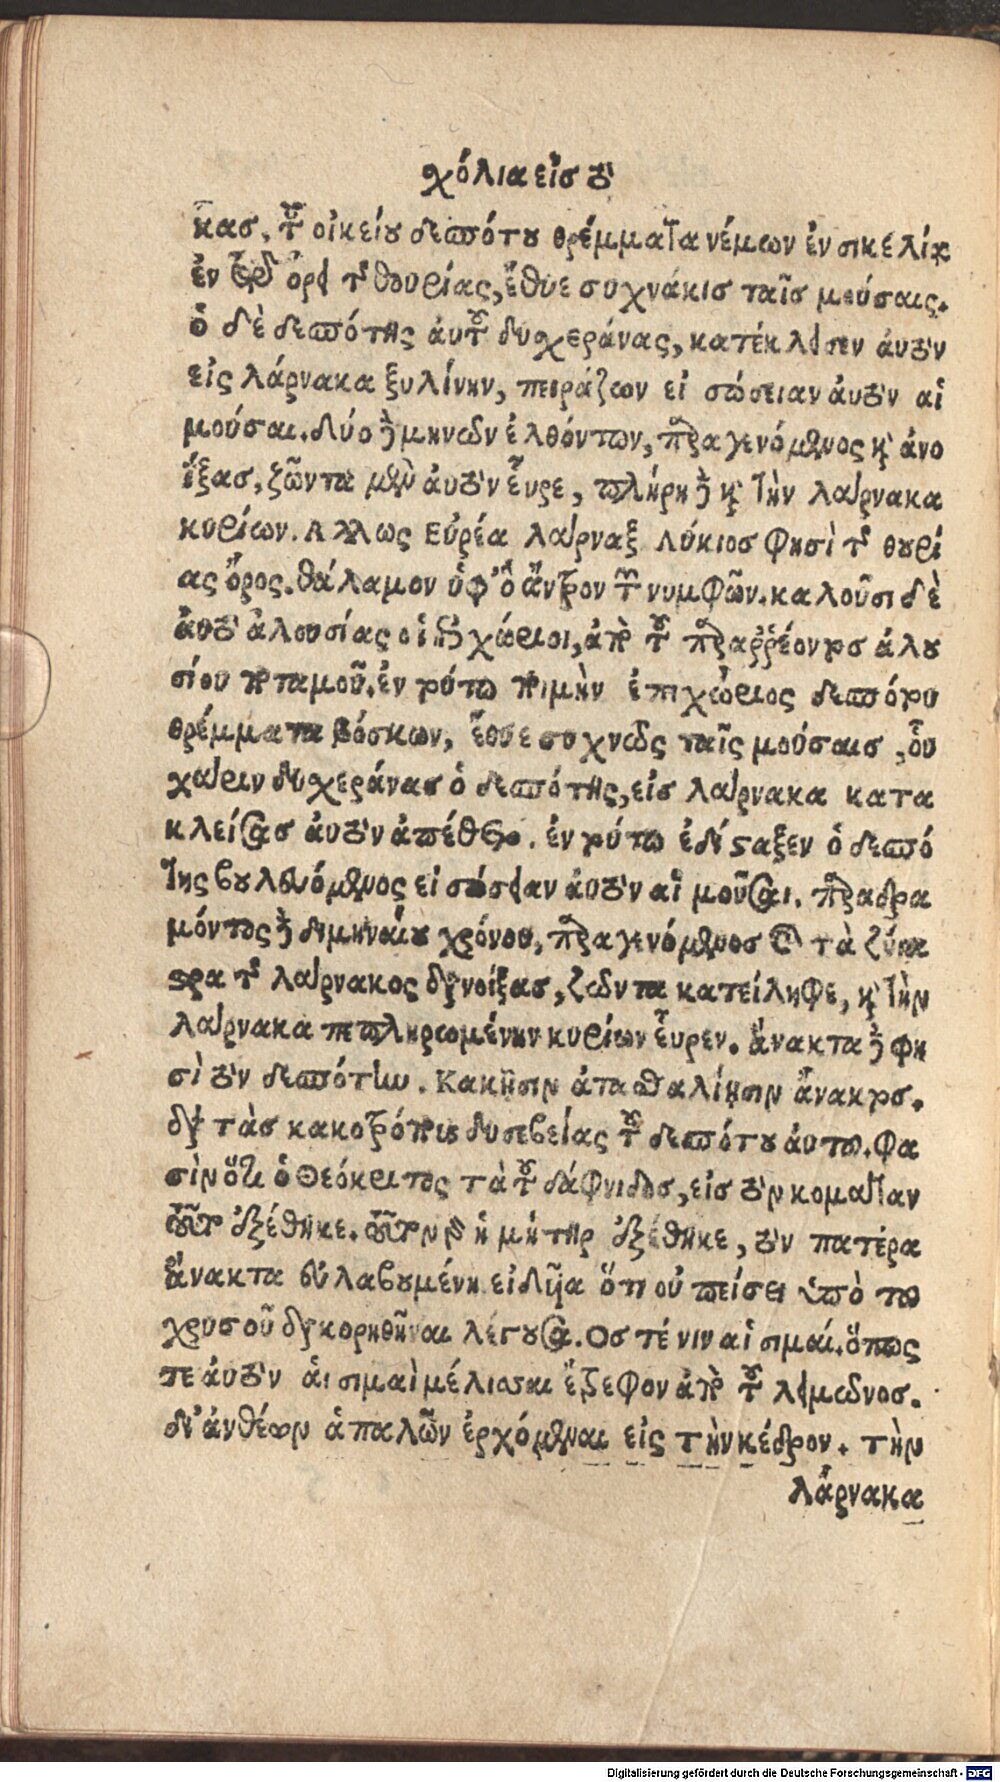 χόλια εἰσ τὸ
κασ. τοῦ οἰκείου δεσπότου θρέμματα νέμων ἐν σικελίᾳ
ἐν τῷ ὄρει τῆς θουρίας, ἔθυε συχνάκισ ταῖσ μούσαις.
ὁ δὲ δεσπότης ἀυτοῦ δυχεράνας, κατέκλεισεν ἀυτὸν
εἰς λάρνακα ξυλίνην, πειράζων εἰ σώσειαν ἀυτὸν αἱ
μούσαι. δύο δὲ μηνῶν ἐλθόντων, παραγενόμενος καὶ ἀνο
ίξασ, ζῶντα μὲν ἀυτὸν εὗρε, πλήρη δὲ καὶ τὴν λάρνακα
κυρίων. Αλλως Εὐρέα λάρναξ Λύκιοσ φησὶ τῆς θουρί
ας ὄρος. θάλαμον ὑφ' ὃ ἄντρον τῶν νυμφῶν. καλοῦσι δὲ
ἀυτὸ ἀλουσίας οἱ ἐγχώριοι, ἀπὸ τοῦ παραῤῥέοντοσ ἁλου
σίου ποταμοῦ. ἐν τούτω ποιμὴν ἐπιχώριος δεσπότου
θρέμματα βόσκων, ἔθυε συχνῶς ταῖς μούσαισ, οὗ
χάριν δυχεράνασ ὁ δεσπότης, εἰσ λάρνακα κατα
κλείσασ ἀυτὸν ἀπέθετο. ἐν τούτω ἐδίσταξεν ὁ δεσπό
της βουλευόμενος εἰ σώσειαν ἀυτὸν αἱ μοῦσαι. παραδρα
μόντος δὲ διμηνιαίου χρόνου, παραγενόμενοσ καὶ τὰ ζύγα
στρα τῆς λάρνακος διανοίξασ, ζῶντα κατείληφε, καὶ τὴν
λάρνακα πεπληρωμένην κυρίων εὗρεν. ἄνακτα δὲ φη
σὶ τὸν δεσπότην. Κακῇσιν ἀτασθαλίῃσιν ἄνακτοσ.
διὰ τὰσ κακοτρόπους δυσεβείας τοῦ δεσπότου ἀυτοῦ. φα
σὶν ὅτι ὁ Θεόκριτος τὰ τοῦ δάφνιδοσ, εἰσ τὸν κομάταν
ἐξέθηκε. ἡ μήτηρ ἐξέθηκε, τὸν πατέρα
ἄνακτα ἐυλαβουμένη εἰδυῖα ὅτι οὐ πείσει ὑπὸ του
χρυσοῦ διακορηθῆναι λέγουσα. Οσ τέ νιν αἱ σιμαί. ὅπως
τε ἀυτὸν ἁι σιμαὶ μέλισσαι ἔτρεφον ἀπὸ τοῦ λειμῶνοσ.
δι' ἀνθέων ἁπαλῶν ἐρχόμεναι εἰς τὴν κέδρον. τὴν
λάρνακα
Digitalisierung gefördert durch die Deutsche Forschungsgemeinschaft - DFG